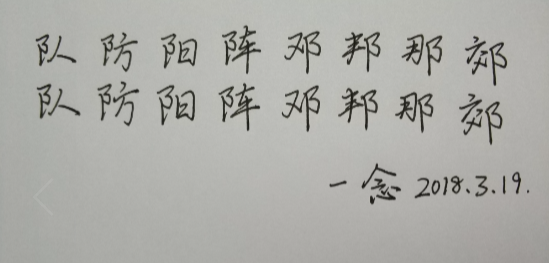 队防阳阵邓邦那郊
队防阳阵邓邦那郊
一念 2018.3.19.